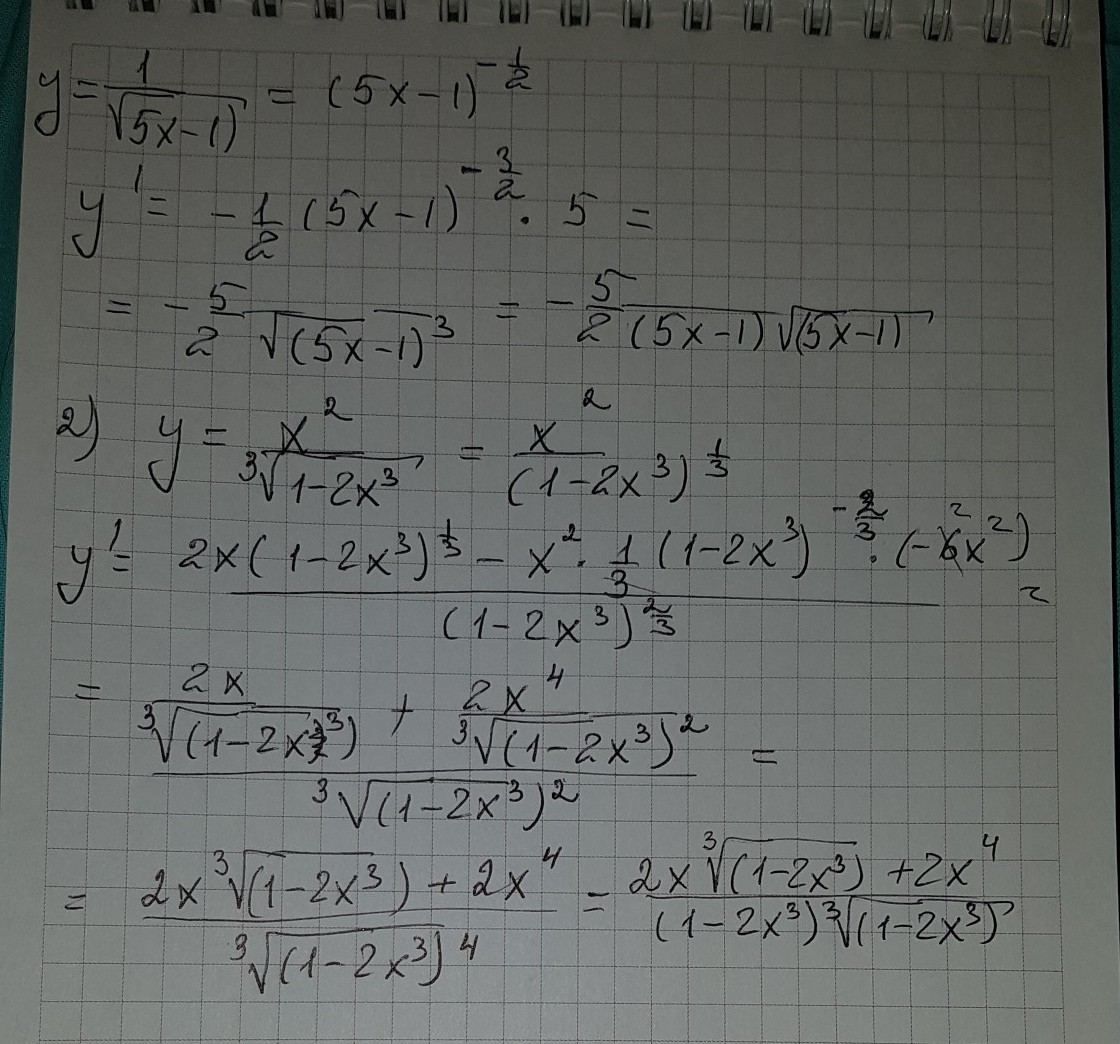 y = 1/√(5x-1) = (5x-1)^(-1/2)
y' = -1/2 (5x-1)^(-3/2) · 5 =
= -5/(2√(5x-1)^3) = -5/(2(5x-1)√(5x-1))
2) y = x^2/∛(1-2x^3) = x^2/(1-2x^3)^(1/3)
y' = (2x(1-2x^3)^(1/3) - x^2 · 1/3 (1-2x^3)^(-2/3) · (-6x^2))/(1-2x^3)^(2/3) =
= (2x/∛(1-2x^3) + 2x^4/∛(1-2x^3)^2)/∛(1-2x^3)^2 =
= (2x∛(1-2x^3) + 2x^4)/∛(1-2x^3)^4 = (2x∛(1-2x^3) + 2x^4)/((1-2x^3)∛(1-2x^3))